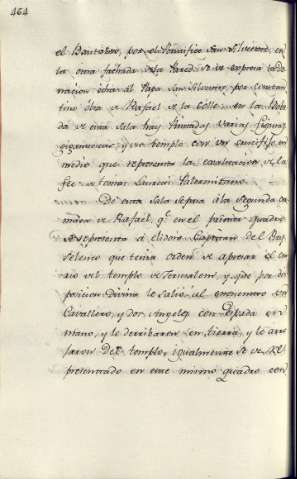 464
el Bautismo, por el Pontifice San Silvestre, en
la otra fachada de la Pared se ve expresa la do
nacion echa al Papa San Silvestre, por Constan
tino obra de Rafael de la Colle. en la Bobe
da de esta Sala hay Pintadas varias figuras
gigantescas, y un templo con un crucifijo en
medio que representa la exaltacion de la
fee de Tomas Laureti Palermitano.
De esta Sala se pasa á la segunda Ca
mara de Rafael, qᵉ en el primer quadro
se representa á eliodoro Capitan del Rey
Seleuco que tenia orden de apresar el te
soro del templo de Jerusalem, y que por dis
posicion Divina le Salió al encuentro un
Cavallero, y dos Angeles con Espada en
mano, y le derribaron en tierra, y le arro
jaron del templo, igualmente se ve Re
presentado en este mismo quadro con